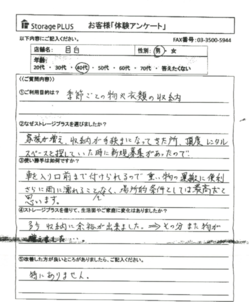 Storage PLUS お客様「体験アンケート」
以下内容にご記入ください。 FAX番号:03-3500-5944
店舗名: 目白 性別: 男・女
年齢:
20代・30代・40代・50代・60代・70代・答えたくない
<ご質問内容>
①ご利用目的は?
季節ごとの物や衣類の収納
②なぜストレージプラスを選びましたか?
家族が増え、収納が手狭になってきた所、横度レンタル
スペースを探していた時に新規募集があったので。
③使い勝手は如何ですか?
軒と入り口前まで付けられるので重い物の運搬に便利
さらに雨に濡れることなく、場所的条件としては最高だと
思います。
④ストレージプラスを借りて、生活面やご家庭に変化はありましたか?
収納に余裕が出来ました。→その分また物が
増えました…。
⑤改善した方が良いところがありましたら、ご記入ください。
特にありません。